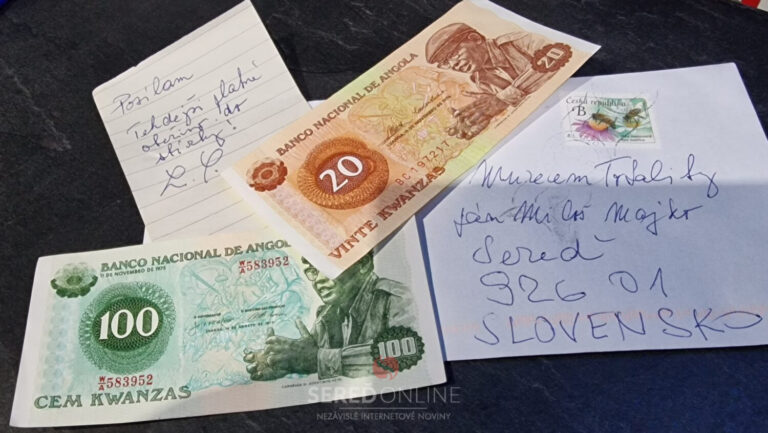 Posílam
Tehdejší platné
oběživo do
sbírky!
BANCO NACIONAL DE ANGOLA
20
20
BC 197217
VINTE KWANZAS
Česká republika
B
Muzeum
Ján Miloš Majko
Sereď
926 01
SLOVENSKO
BANCO NACIONAL DE ANGOLA
11 DE NOVEMBRO DE 1975
W/A 583952
100
100
W/A 583952
CEM KWANZAS
SEREĎ ONLINE
NEZÁVISLÉ INTERNETOVÉ NOVINY